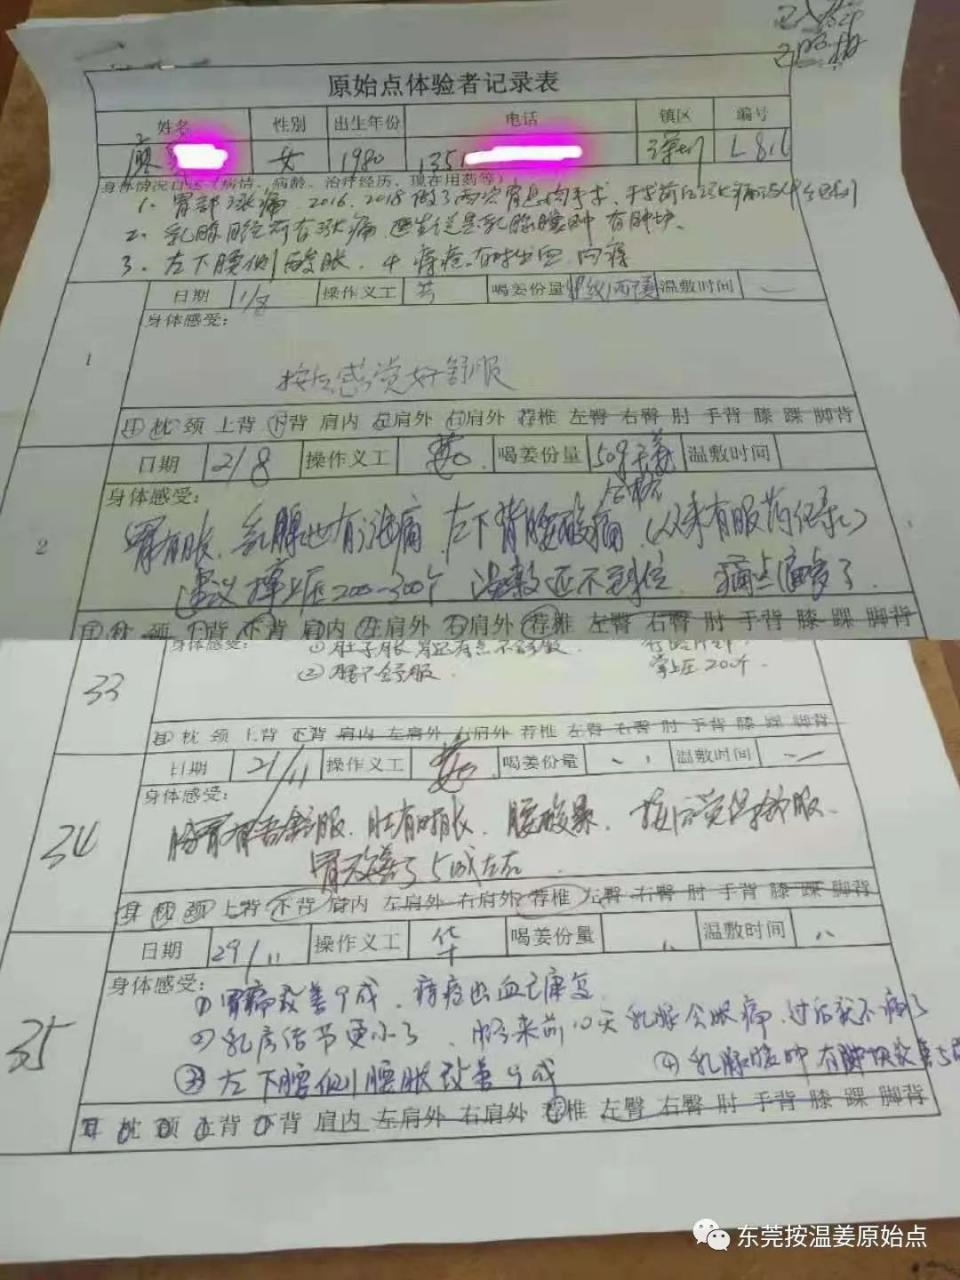 原始点体验者记录表
姓名 性别 出生年份 电话 镇区 编号
廖 女 1980 1351 L816
身体情况自述（病情、病龄、治疗经历、现在用药等）
1、胃部胀痛，2016、2018做了两次胃息肉手术，手术前后胀痛
2、乳腺月经前有胀痛，医生说是乳腺腔肿有肿块。
3、左下腰侧酸胀，4、痔疮有时出血，内痔
日期 1/8 操作义工 芳 喝姜份量 温敷时间
身体感受：
1
按后感觉好舒服
耳 枕 颈 上背 下背 肩内 左肩外 右肩外 荐椎 左臀 右臀 肘 手背 膝 踝 脚背
日期 2/8 操作义工 喝姜份量 509 温敷时间
身体感受：
2
胃有胀，乳腺也有胀痛，左下背腰酸痛，（从未有服药记录）
建议掌上压200～300个 温敷还不到位，痛点偏多了。
耳 枕 颈 上背 下背 肩内 左肩外 右肩外 荐椎 左臀 右臀 肘 手背 膝 踝 脚背
身体感受： ①肚子胀，胃还有点不舒服。
33 ②腰不舒服。 掌上压200个
耳 枕 颈 上背 下背 肩内 左肩外 右肩外 荐椎 左臀 右臀 肘 手背 膝 踝 脚背
日期 21/11 操作义工 喝姜份量 温敷时间
身体感受：
34
肚有时胀，腰酸累，按后觉得舒服、
胃改善了5成左右
耳 枕 颈 上背 下背 肩内 左肩外 右肩外 荐椎 左臀 右臀 肘 手背 膝 踝 脚背
日期 29/11 操作义工 华 喝姜份量 温敷时间
身体感受：
35
①胃痛改善9成，痔疮出血已康复
②乳房结节更小了，月经来前10天乳腺会胀痛，过后就不痛了
③左下腰侧腰胀改善9成 ④乳腺腔肿有肿块改善5成
耳 枕 颈 上背 下背 肩内 左肩外 右肩外 荐椎 左臀 右臀 肘 手背 膝 踝 脚背
东莞按温姜原始点